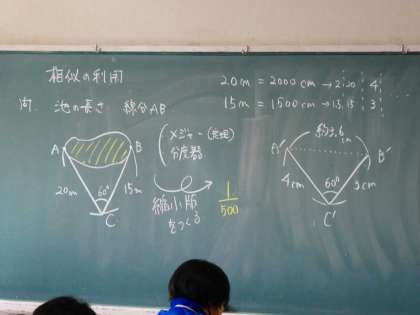 相似の利用
問. 池の長さ 線分AB
20m = 2000cm → 20 4
15m = 1500cm → 15 3
A B
20m 15m
60°
C
メジャー
分度器
縮小版
をつくる
1
500
約3.6
cm
A' B'
4cm 3cm
60°
C'